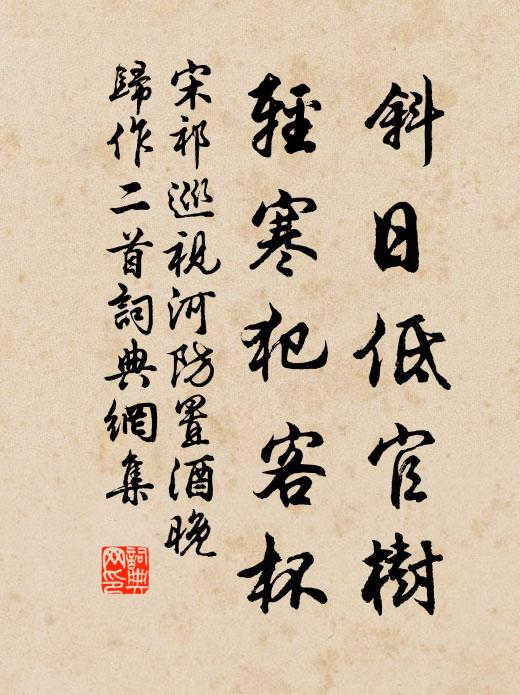 斜日低官樹
輕寒犯客杯
宋祁巡視河防置酒晚
歸作二首詞典網集
詞典
網印